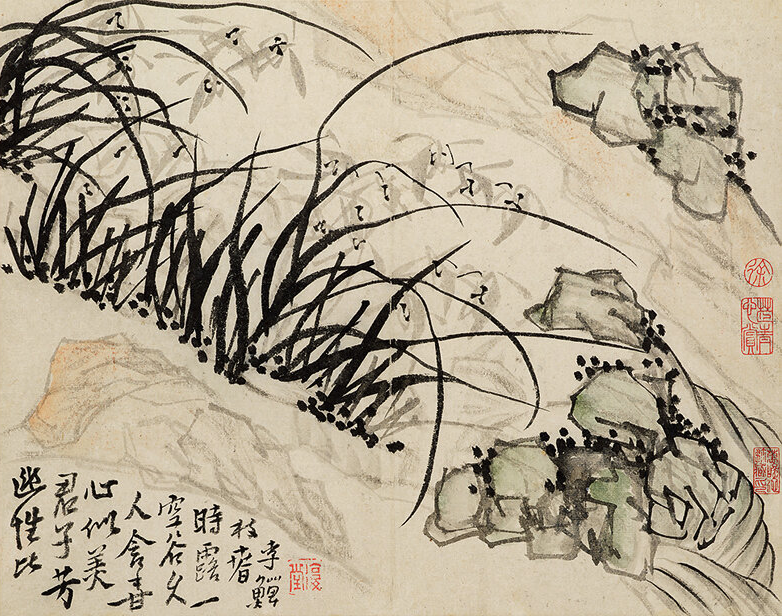 幽性比
君子芳
心似美
人含香
空谷久
時露一
枝春
李鱓
復堂
徐